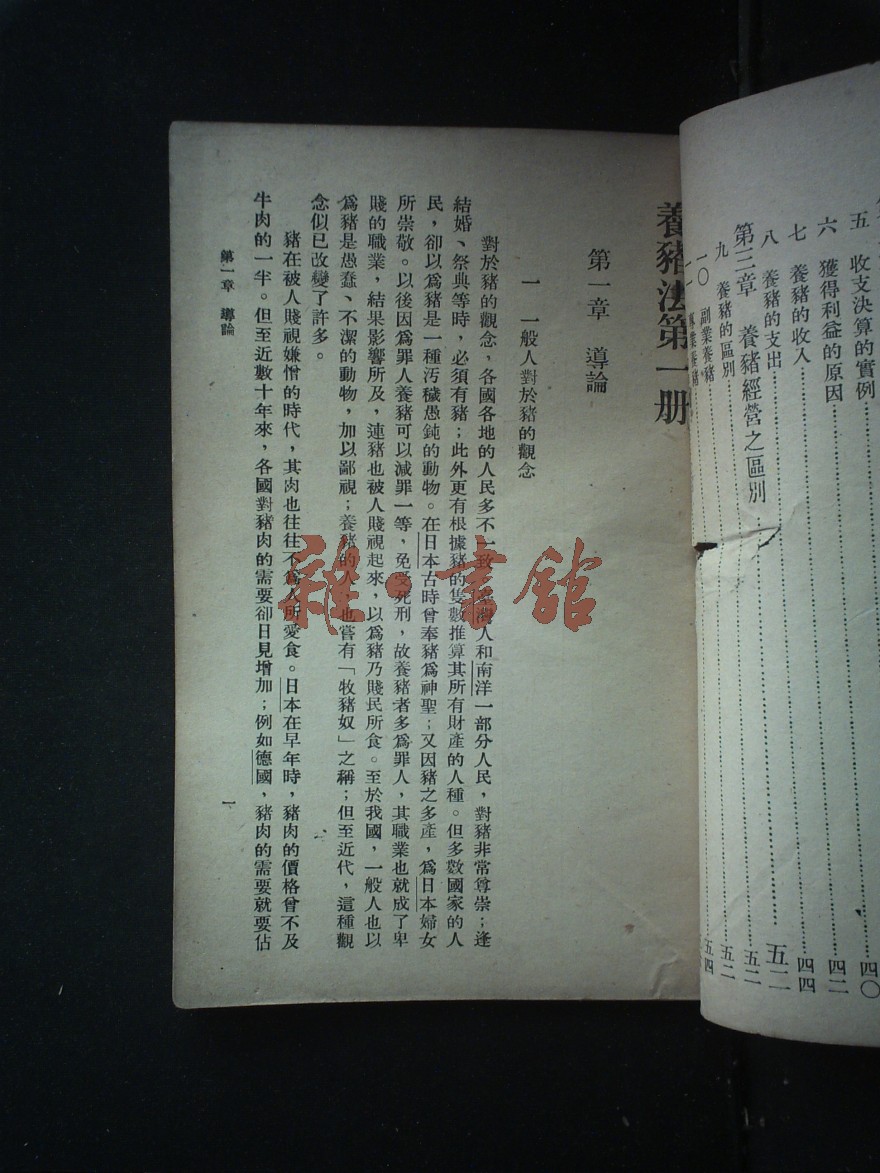 五 收支決算的實例……四〇
六 獲得利益的原因……四二
七 養豬的收入……四四
八 養豬的支出……四四
第三章 養豬經營之區別……五二
九 養豬的區別……五二
一〇 副業養豬……五二
一一 專業養豬……五四
養豬法第一册
第一章 導論
一 一般人對於豬的觀念
對於豬的觀念，各國各地的人民多不一致，人和南洋一部分人民，對豬非常尊崇；逢
結婚、祭典等時，必須有豬；此外更有根據豬的隻數推算其所有財產的人種。但多數國家的人
民，卻以爲豬是一種汚穢愚鈍的動物。在日本古時曾奉豬爲神聖；又因豬之多產，爲日本婦女
所崇敬。以後因爲罪人養豬可以減罪一等，免受死刑，故養豬者多爲罪人，其職業也就成了卑
賤的職業，結果影響所及，連豬也被人賤視起來，以爲豬乃賤民所食。至於我國，一般人也以
爲豬是愚蠢、不潔的動物，加以鄙視；養豬的人，也嘗有「牧豬奴」之稱；但至近代，這種觀
念似已改變了許多。
豬在被人賤視嫌憎的時代，其肉也往往不爲人所愛食。日本在早年時，豬肉的價格曾不及
牛肉的一半。但至近數十年來，各國對豬肉的需要卻日見增加；例如德國，豬肉的需要就要佔
第一章 導論
一
雜·書館